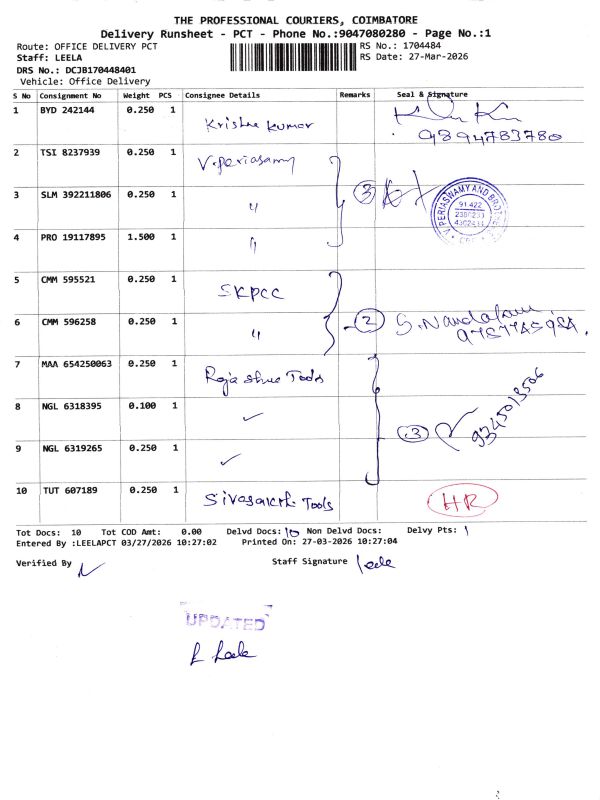 THE PROFESSIONAL COURIERS, COIMBATORE
Delivery Runsheet - PCT - Phone No.:9047080280 - Page No.:1
Route: OFFICE DELIVERY PCT RS No.: 1704484
Staff: LEELA RS Date: 27-Mar-2026
DRS No.: DCJB170448401
Vehicle: Office Delivery
S No Consignment No Weight PCS Consignee Details Remarks Seal & Signature
1 BYD 242144 0.250 1 Krishna Kumar
9894783780
2 TSI 8237939 0.250 1 V.periasamy
3 SLM 392211806 0.250 1 〃 3
V.PERIASWAMY AND BROTHERS
4 PRO 19117895 1.500 1 〃
5 CMM 595521 0.250 1 SKPCC
6 CMM 596258 0.250 1 〃 2
7 MAA 654250063 0.250 1 Raja shree Tools
8 NGL 6318395 0.100 1 ✓ 3 9345013506
9 NGL 6319265 0.250 1 ✓
10 TUT 607189 0.250 1 Sivasakthi Tools HR
Tot Docs: 10 Tot COD Amt: 0.00 Delvd Docs: 10 Non Delvd Docs: Delvy Pts: 1
Entered By :LEELAPCT 03/27/2026 10:27:02 Printed On: 27-03-2026 10:27:04
Verified By Staff Signature Leela
UPDATED
L Leela